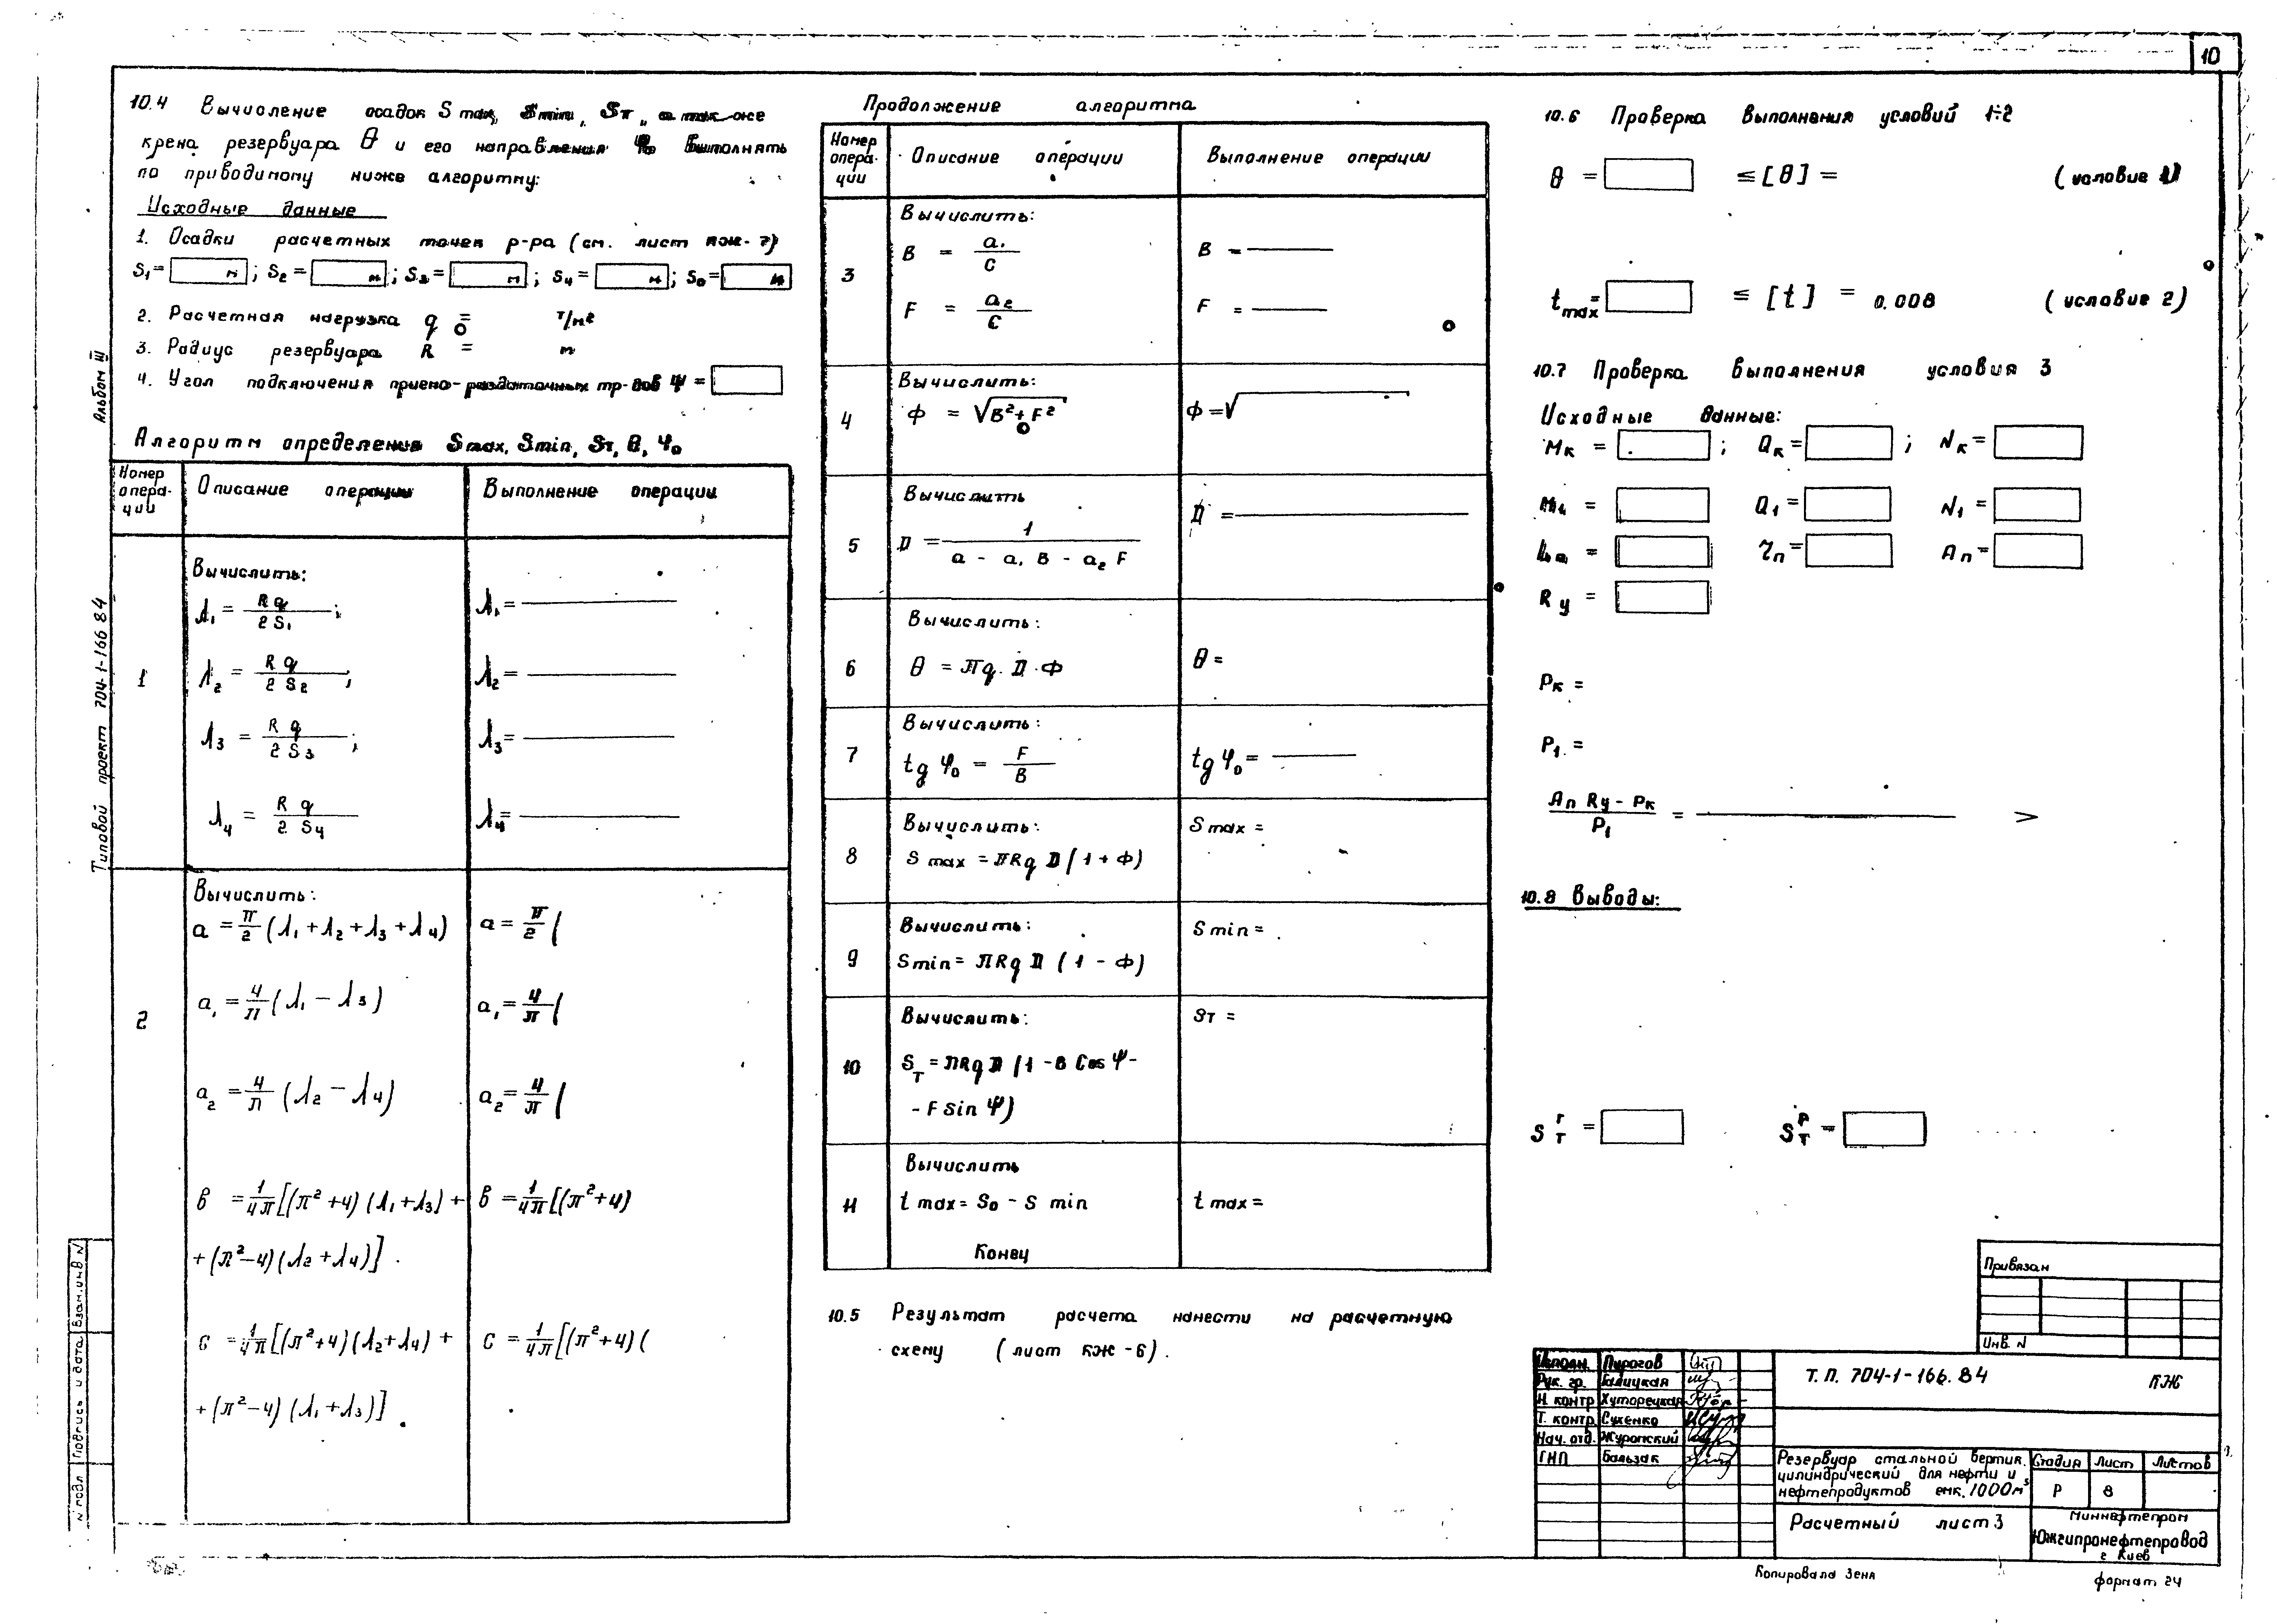 10
10.4 Вычисление осадок S max, S min, Sт, а так же
крена резервуара θ и его направления φ₀ выполнять
по приводимому ниже алгоритму:
Исходные данные
1. Осадки расчетных точек р-ра (см. лист КЖ-7)
S₁= м; S₂= м; S₃= м; S₄= м; S₀= м
2. Расчетная нагрузка q₀ = т/м²
3. Радиус резервуара R = м
4. Угол подключения приемо-раздаточных тр-дов ψ =
Алгоритм определения Smax, Smin, Sт, θ, φ₀
Номер опера-ции
Описание операции
Выполнение операции
1
Вычислить:
λ₁ = R q / 2 S₁ ;
λ₁ =
λ₂ = R q / 2 S₂ ;
λ₂ =
λ₃ = R q / 2 S₃ ;
λ₃ =
λ₄ = R q / 2 S₄
λ₄ =
2
Вычислить:
a = π/2 (λ₁ + λ₂ + λ₃ + λ₄)
a = π/2 (
a₁ = 4/π (λ₁ − λ₃)
a₁ = 4/π (
a₂ = 4/π (λ₂ − λ₄)
a₂ = 4/π (
в = 1/4π [(π² + 4) (λ₁ + λ₃) +
в = 1/4π [(π² + 4)
+ (π² − 4) (λ₂ + λ₄)].
c = 1/4π [(π² + 4) (λ₂ + λ₄) +
c = 1/4π [(π² + 4) (
+ (π² − 4) (λ₁ + λ₃)].
Продолжение алгоритма
Номер опера-ции
Описание операции
Выполнение операции
3
Вычислить:
B = a₁ / c
B =
F = a₂ / c
F =
4
Вычислить:
Ф = √B² + F²
Ф = √
5
Вычислить
D = 1 / a − a₁ B − a₂ F
D =
6
Вычислить:
θ = πq · D · Ф
θ =
7
Вычислить:
tg φ₀ = F / B
tg φ₀ =
8
Вычислить:
S max = πRq D (1 + Ф)
S max =
9
Вычислить:
S min = πRq D (1 − Ф)
S min =
10
Вычислить:
Sт = πRq D (1 − B Cos ψ −
− F Sin ψ)
Sт =
11
Вычислить
t max = S₀ − S min
t max =
Конец
10.5 Результат расчета нанести на расчетную
схему (лист КЖ-6).
10.6 Проверка выполнения условий 1÷2
θ = ≤ [θ] = (условие 1)
t max = ≤ [t] = 0.008 (условие 2)
10.7 Проверка выполнения условия 3
Исходные данные:
Mк = ; Qк = ; Nк =
M₁ = Q₁ = N₁ =
rп = Aп =
Rу =
Pк =
P₁ =
Aп Rу − Pк / P₁ = >
10.8 Выводы:
S г т = S р т =
Привязан
Инв. N
Исполн. Пирогов
Рук. гр. Галицкая
Н. контр Хуторецкая
Т. контр. Сукенко
Нач. отд. Журомский
ГИП Бальзак
Т. П. 704-1-166.84 КЖ
Резервуар стальной вертик.
цилиндрический для нефти и
нефтепродуктов емк. 1000м³
Стадия Лист Листов
Р 8
Расчетный лист 3
Миннефтепром
Южгипронефтепровод
г. Киев
Копировала Зена
формат 24
Альбом III
Типовой проект 704-1-166 84
Взам. инв N
Подпись и дата
N подл